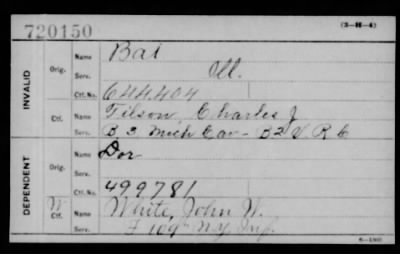 720150
(3-H-4)
INVALID
Orig.
Name Bat
Serv. Ill.
Ctf. No. 644404
Ctf.
Name Tilson, Charles J
Serv. B 3 Mich Cav - B 2 V R C
DEPENDENT
Orig.
Name Dor
Serv.
Ctf. No. 499781
W
Ctf.
Name White, John W.
Serv. F 109" N.Y. Inf.